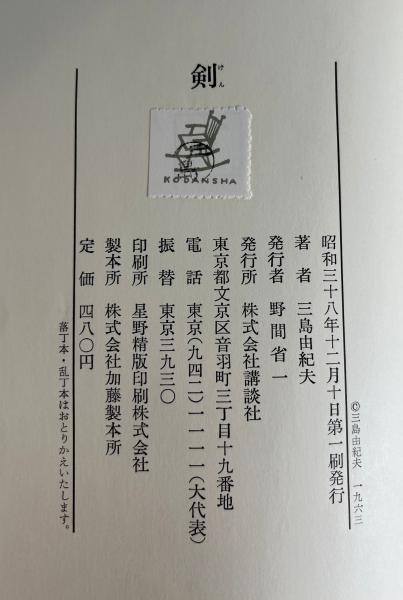 剣
けん
KODANSHA
©三島由紀夫 一九六三
昭和三十八年十二月十日第一刷発行
著者 三島由紀夫
発行者 野間省一
発行所 株式会社講談社
東京都文京区音羽町三丁目十九番地
電話 東京(九四二)一一一一(大代表)
振替 東京三九三〇
印刷所 星野精版印刷株式会社
製本所 株式会社加藤製本所
定価 四八〇円
落丁本・乱丁本はおとりかえいたします。